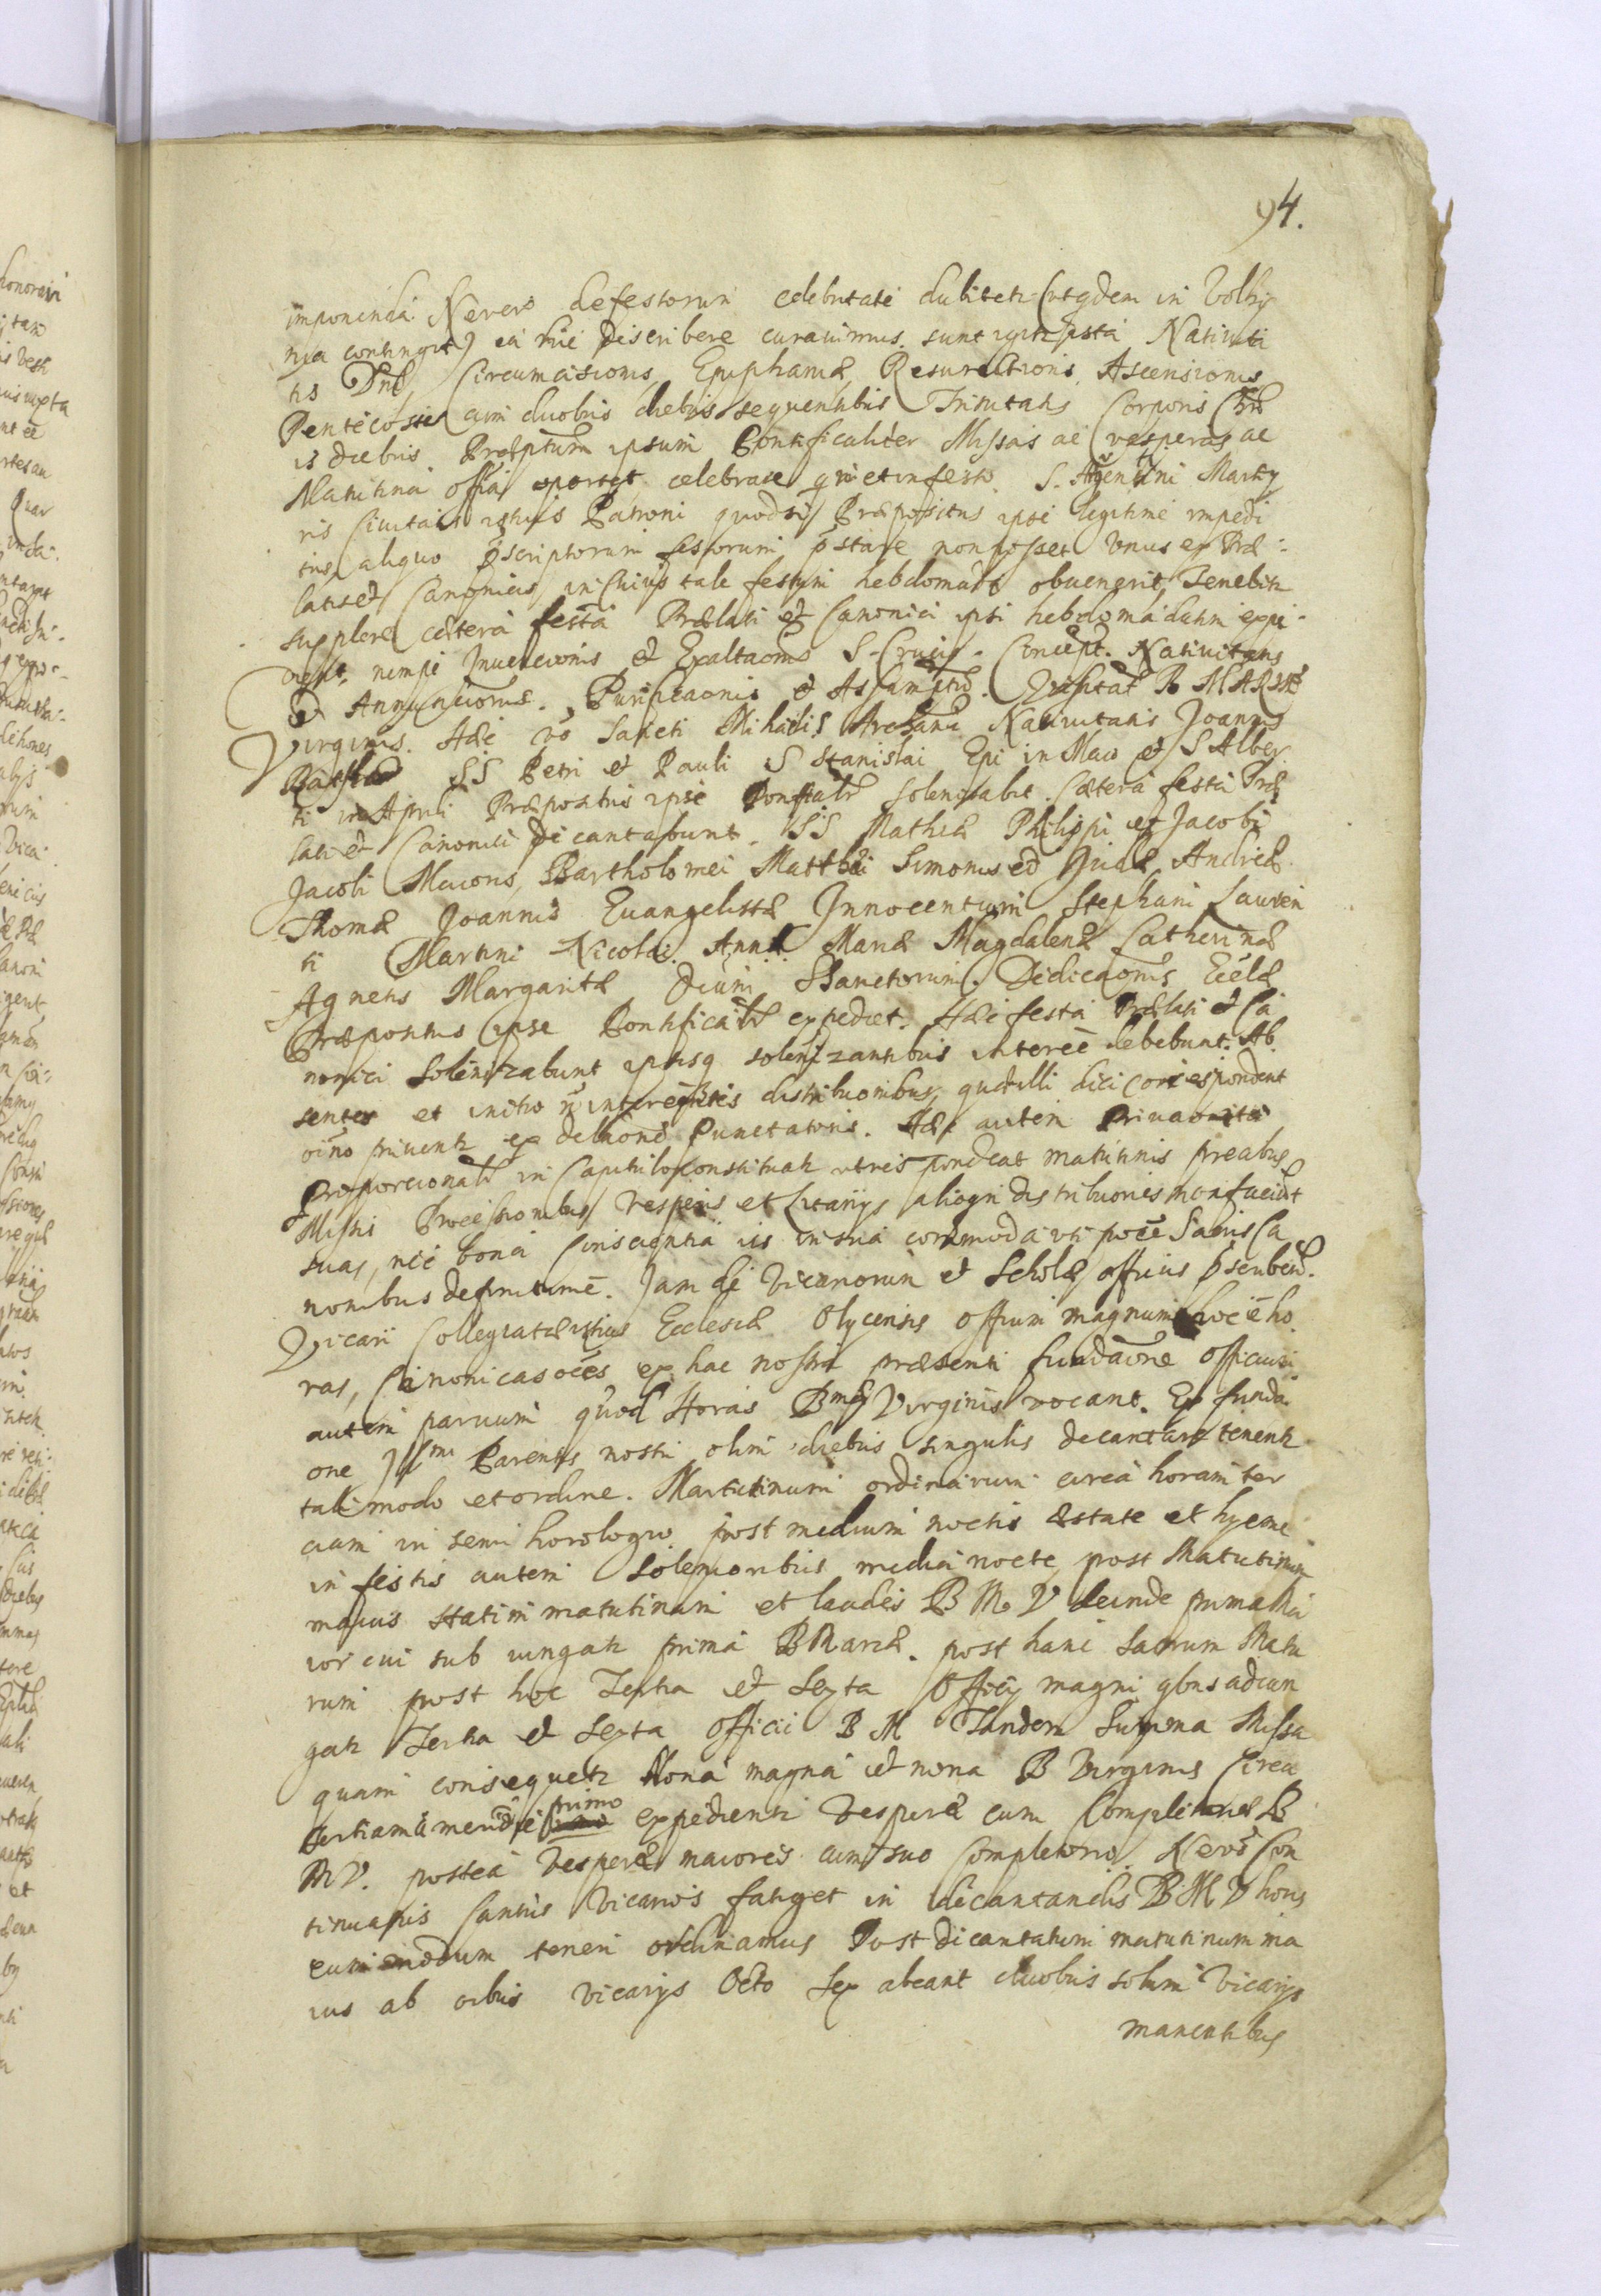 94.
imponenda. Ne vero de festorum celebritate dubitetr (ut qdem in Volhy
nia contingit) ea hic describere curavimus. sunt igitr ista Nativita
tis Dnicæ Circumcisionis, Epiphaniæ, Resurectionis, Ascensionis
Pentecostes cum duobus diebus sequentibus Trinitatis Corporis Chri
is diebus. Præptum ipsum Pontificaliter Missas ac vesperas ac
Matutina offia oportet celebrare qui et in festo S. Martÿ
ris Civitatis istius Patroni quodsi Præpositus ipse legitime impedi
tus aliquo pscriptorum festorum pstare non posset Unus ex Præ-
latis et Canonicis, in Cuius tale festum hebdomada obvenerit, Tenebitr
supplere cætera festa Prælati et Canonici ipsi hebdomadatim expe-
dient, nempe Inventionis et Exaltaonis S. Crucis. Concept. Nativitatis
et Annunciaonis. Purificaonis et Assumptio. Visitat. B MARIÆ
Virginis. Hæc vo Sancti Michaelis Archani Nativitatis Joannis
Baptistæ SS Petri et Pauli S Stanislai Epi in Maio et S Alber
ti in Aprili Præpositus ipse Pontficalr solenizabit. Cætera festa Præ
lati et Canonici Decantabunt. SS Mathiæ Philippi et Jacobi
Jacobi Maioris, Bartholomei Matthæi Simonis et Judæ Andreæ.
Thomæ Joannis Evangelistæ Innocentum Stephani Lauren
ti Martini Nicolai. Annæ. Mariæ Magdalenæ Catherinæ
Agnetis Margaritæ Oium SSanctorum. Dedicaonis Eccliæ
Præpositus ipse Pontificalr expediet. Hæc festa Prælati et Ca
nonici Solenizabunt ipsisq solenizantibus interee debebunt. Ab
sentes et initio n distribuonibus, quæ illi diei correspondent
oino priventr ex delaone Punctatoris. Hæc autem
Proporcionalr in Capitulo constituatr ut respondeat matutinis precibus
Missis Processionibus Vesperis et Litanijs alioqni distribuones non faciunt
suas, nec bona Conscientia iis in sua commoda uti poce Sacris Ca
nonibus definitum e. Jam de Vicariorum et Scholæ officiis pscribend.
Vicarii Collegiatæ istius Ecclesiæ Olycensis Offium magnum hoc e ho
ras, Canonicas oes, ex hac nostra præsenti fundaone Officium
autem parvum quod Horas Bmæ Virginis vocant. Ex funda
one Illmi Parentis nostri olim diebus singulis decantare tenentr
tali modo et ordine. Matutinum ordinarium circa horam ter
ciam in semi horologio post medium noctis æstate et hyeme
in festis autem Solenioribus media nocte, post Matutinum
maius statim matutinum et laudes B M V deinde prima Ma
ior cui sub iungatr prima B Mariæ. post hanc Sacrum Matu
rum post hoc Tertia et Sexta Officij magni qbus adiun
gatr Tertia et Sexta Officii B M Tandem Summa Missa
quam consequetr Nona magna et nona B Virginis Circa
tertiam a meridie primo expedientr Vesperæ cum Completorio B
M V. postea Vesperæ maiores cum suo Completorio. Ne vo Con
tinuatus Cantus Vicarios fatiget in decantandis B M V horis
eum modum teneri ordinamus Post decantatum matutinum ma
ius ab oibus Vicarijs Octo Sex abeant duobus solum Vicarijs
manentibus